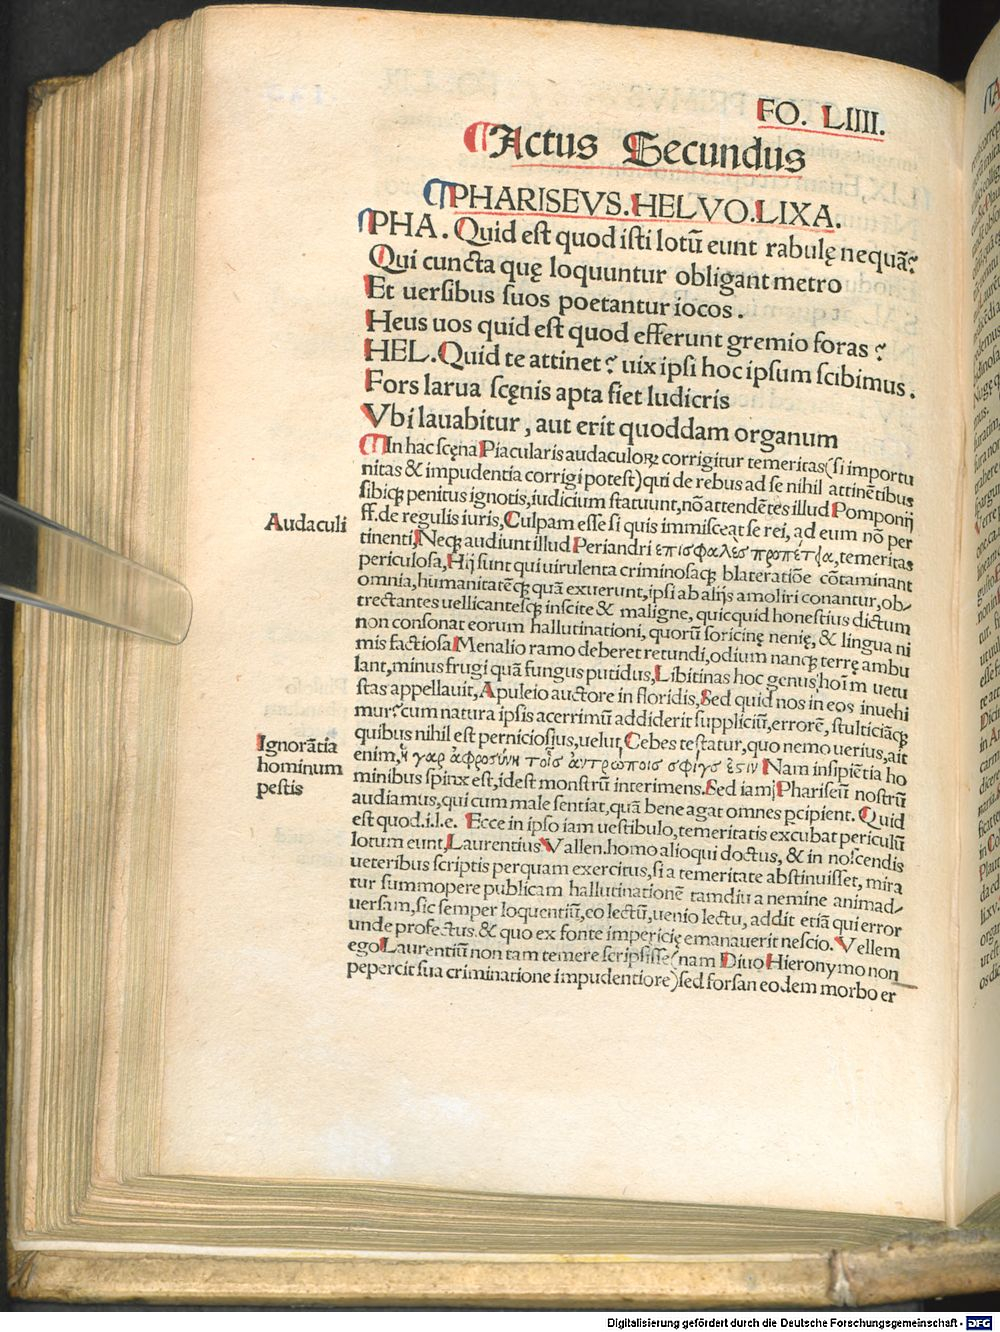 FO. LIIII.
¶Actus Secundus
¶PHARISEVS.HELVO.LIXA.
¶PHA. Quid est quod isti lotū eunt rabulę nequā?
Qui cuncta quę loquuntur obligant metro
Et uersibus suos poetantur iocos.
Heus uos quid est quod efferunt gremio foras?
HEL. Quid te attinet? uix ipsi hoc ipsum scibimus.
Fors larua scęnis apta fiet ludicris
Vbi lauabitur, aut erit quoddam organum
¶In hac scęna Piacularis audaculoꝝ corrigitur temeritas(si importu
nitas & impudentia corrigi potest)qui de rebus ad se nihil attinētibus
sibiqꝫ penitus ignotis,iudicium statuunt,nō attendētes illud Pomponij
ff.de regulis iuris,Culpam esse si quis immisceat se rei, ad eum nō per
tinenti,Neqꝫ audiunt illud Periandri ἐπισφαλὲσ προπέτεα, temeritas
periculosa,Hij sunt qui uirulenta criminosaqꝫ blateratiōe cōtaminant
omnia,humanitatēqꝫ quā exuerunt,ipsi ab alijs amoliri conantur,ob⸗
trectantes uellicantesqꝫ inscite & maligne, quicquid honestius dictum
non consonat eorum hallutinationi, quorū soricinę nenię, & lingua ni
mis factiosa Menalio ramo deberet retundi,odium nanqꝫ terrę ambu
lant,minus frugi quā fungus putidus,Libitinas hoc genus hoīm uetu
stas appellauit,Apuleio auctore in floridis,Sed quid nos in eos inuehi
mur?cum natura ipsis acerrimū addiderit suppliciū,errorē, stulticiāqꝫ
quibus nihil est perniciosius,uelut Cebes testatur,quo nemo uerius,ait
enim,ἡ γαρ ἀφροσύνη τοῖσ ἀυτρώποισ σφιγσ ἐσιν Nam insipiētia ho
minibus spinx est,idest monstrū interimens.Sed iamj Phariseū nostrū
audiamus,qui cum male sentiat,quā bene agat omnes ꝑcipient. Quid
est quod.i.l.e. Ecce in ipso iam uestibulo,temeritatis excubat periculū
lotum eunt,Laurentius Vallen.homo alioqui doctus, & in noscendis
ueteribus scriptis perquam exercitus,si a temeritate abstinuisset, mira
tur summopere publicam hallutinationē tamdiu a nemine animad⸗
uersam,sic semper loquentiū,eo lectū,uenio lectu, addit etiā qui error
unde profectus.& quo ex fonte impericię emanauerit nescio. Vellem
ego Laurentiū non tam temere scripsisse(nam Diuo Hieronymo non
pepercit sua criminatione impudentiore)sed forsan eodem morbo er
Audaculi
Ignorātia
hominum
pestis
Digitalisierung gefördert durch die Deutsche Forschungsgemeinschaft - DFG